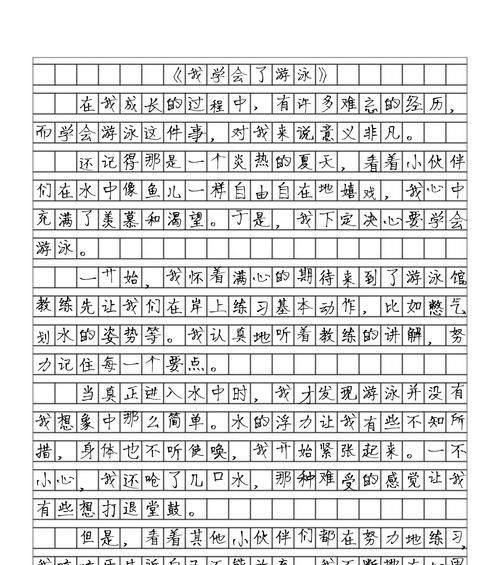 《我学会了游泳》
在我成长的过程中，有许多难忘的经历，
而学会游泳这件事，对我来说意义非凡。
还记得那是一个炎热的夏天，看着小伙伴
们在水中像鱼儿一样自由自在地嬉戏，我心中
充满了羡慕和渴望。于是，我下定决心要学会
游泳。
一开始，我怀着满心的期待来到了游泳馆
教练先让我们在岸上练习基本动作，比如憋气
划水的姿势等。我认真地听着教练的讲解，努
力记住每一个要点。
当真正进入水中时，我才发现游泳并没有
我想象中那么简单。水的浮力让我有些不知所
措，身体也不听使唤，我开始紧张起来。一不
小心，我还呛了几口水，那种难受的感觉让我
有些想打退堂鼓。
但是，看着其他小伙伴们都在努力地练习，